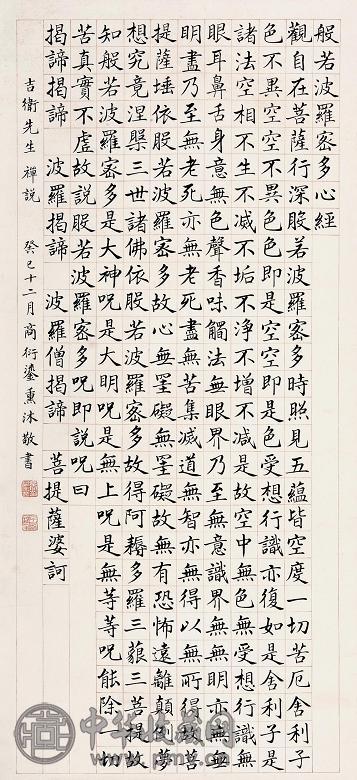 般若波羅密多心經
觀自在菩薩行深般若波羅密多時照見五蘊皆空度一切苦厄舍利子
色不異空空不異色色即是空空即是色受想行識亦復如是舍利子是
諸法空相不生不滅不垢不淨不增不減是故空中無色無受想行識無
眼耳鼻舌身意無色聲香味觸法無眼界乃至無意識界無無明亦無無
明盡乃至無老死亦無老死盡無苦集滅道無智亦無得以無所得故菩
提薩埵依般若波羅密多故心無罣礙無罣礙故無有恐怖遠離顛倒夢
想究竟涅槃三世諸佛依般若波羅密多故得阿耨多羅三藐三菩提故
知般若波羅密多是大神呪是大明呪是無上呪是無等等呪能除一切
苦真實不虛故說般若波羅密多呪即說呪曰
揭諦揭諦 波羅揭諦 波羅僧揭諦 菩提薩婆訶
吉衛先生 禪説 癸巳十二月商衍鎏熏沐敬書
中华收藏网